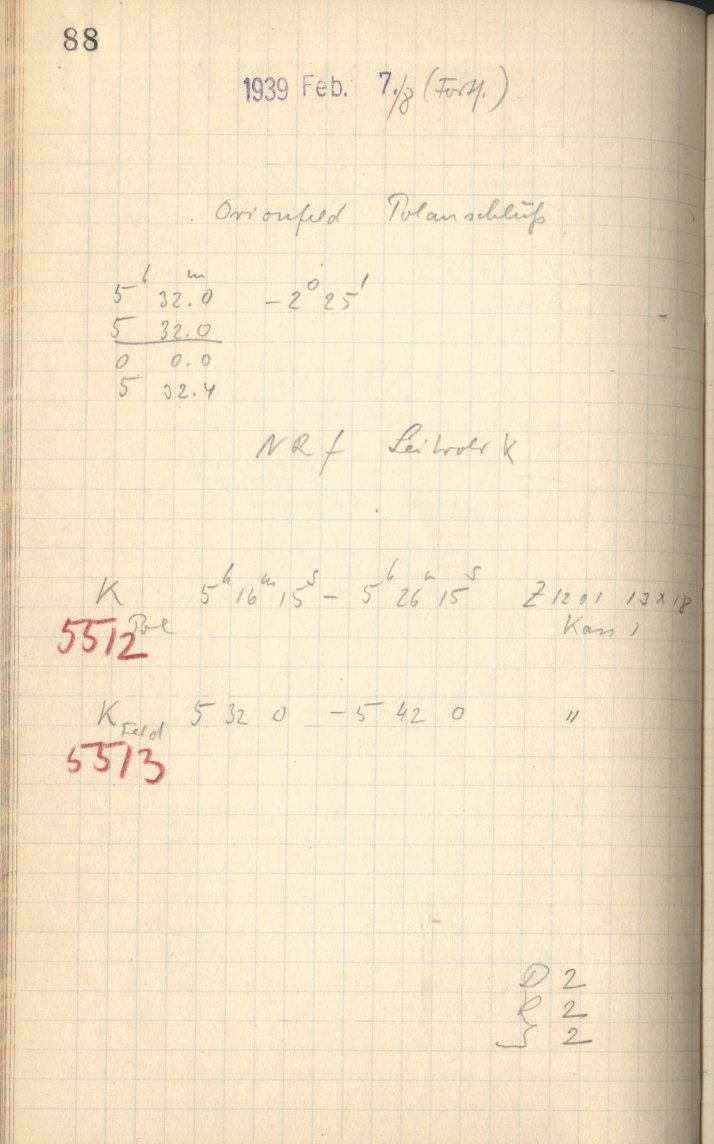 88
1939 Feb. 7./8 (Forts.)
Orionfeld Polanschluß
5ʰ 32.0ᵐ −2° 25'
5 32.0
0 0.0
5 32.4
NRf Leitrohr K
K Pol 5ʰ 16ᵐ 15ˢ – 5ʰ 26ᵐ 15ˢ Z 1201 13x18
5512 Kass 1
K Feld 5 32 0 – 5 42 0 "
5513
D 2
R 2
S 2